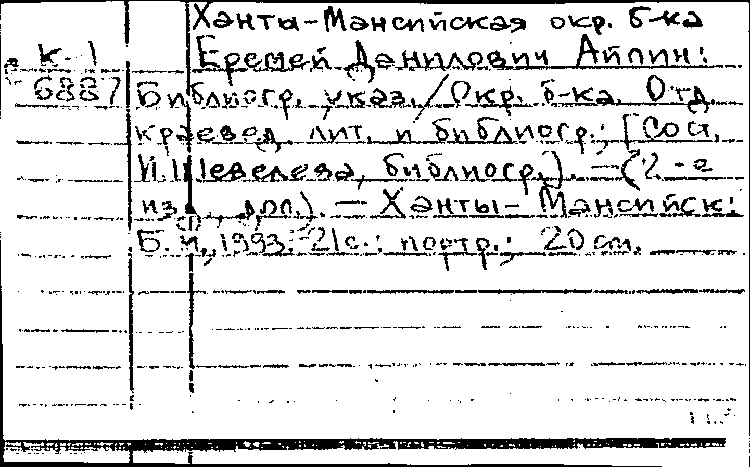 Ханты-Мансийская окр. б-ка
К-1
6887
Еремей Данилович Айпин:
Библиогр. указ. / Окр. б-ка. Отд.
краевед. лит. и библиогр.; [Сост.
И. Шевелева, библиогр.]. — (2-е
из., доп.). — Ханты-Мансийск:
Б. и., 1993. 21 с.: портр.; 20 см.